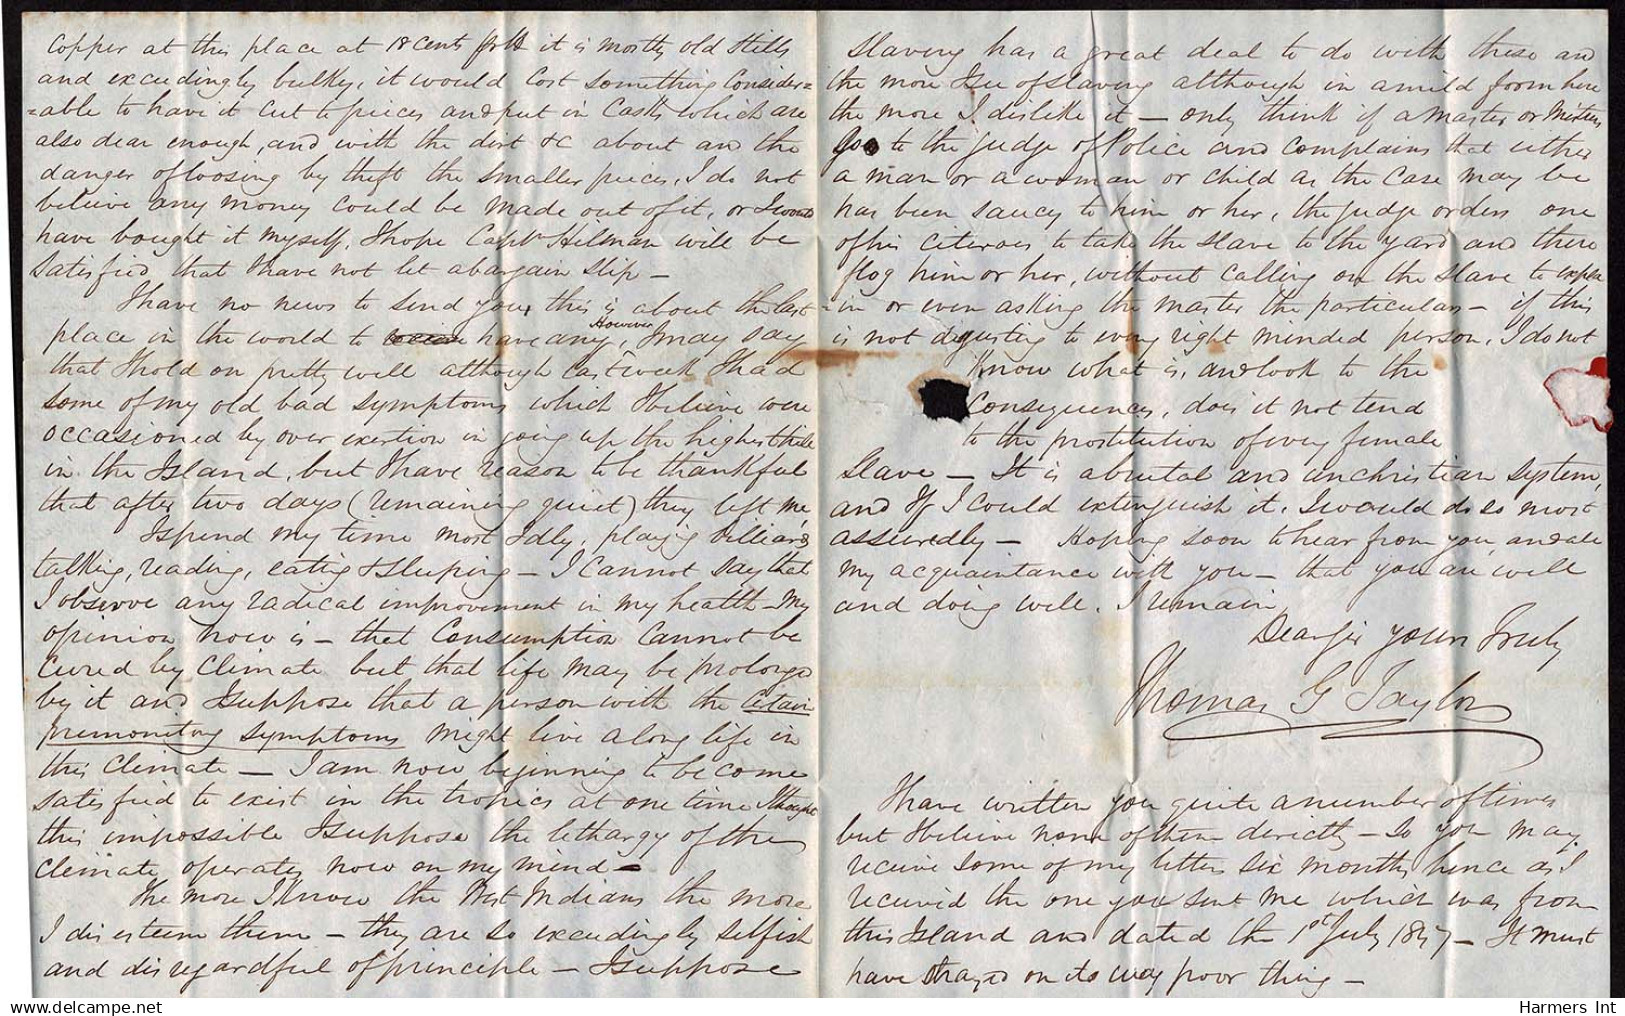 Copper at this place at 18 cents pr lb it is mostly old Stills
and exceedingly bulky, it would Cost something Consider=
=able to have it Cut to pieces and put in Casks which are
also dear enough, and with the dirt &c about and the
danger of loosing by theft the smaller pieces, I do not
believe any money could be made out of it, or I would
have bought it myself, I hope Captn Hilman will be
satisfied that I have not let a bargain slip —
I have no news to send you, this is about the last
place in the world to have any, However I may say
that I hold on pretty well although last week I had
some of my old bad symptoms which I believe were
occasioned by over exertion in going up the highest hill
in the Island, but I have reason to be thankful
that after two days (remaining quiet) they left me,
I spend my time most Idly, playing billiards
talking, reading, eating & sleeping — I cannot say that
I observe any radical improvement in my health — My
opinion now is — that Consumption Cannot be
Cured by Climate but that life may be prolonged
by it and I suppose that a person with the Certain
premonitory symptoms might live a long life in
this Climate — I am now beginning to become
satisfied to exist in the tropics at one time I thought
this impossible I suppose the lethargy of the
Climate operates now on my mind —
The more I know the West Indians the more
I disesteem them — they are so exceedingly selfish
and disregardful of principle — I suppose
slavery has a great deal to do with these and
the more I see of slavery although in a mild form here
the more I dislike it — only think if a master or Mistress
Goes to the judge of Police and complains that either
a man or a woman or child as the Case may be
has been saucy to him or her, the judge orders one
of his to take the slave to the yard and there
flog him or her, without calling on the slave to expla
=in or even asking the master the particulars — if this
is not disgusting to every right minded person, I do not
Know what is, and look to the
Consequences, does it not tend
to the prostitution of every female
slave — It is a brutal and unchristian system,
and If I could extinguish it, I would do so most
assuredly — Hoping soon to hear from you, and all
my acquaintance with you — that you are well
and doing well. I remain
Dear Sir yours Truly
Thomas G Taylor
I have written you quite a number of times
but I believe none of them directly — So you may
receive some of my letters six months hence as I
received the one you sent me which was from
this Island and dated the 1st July 1847 — It must
have strayed on its way poor thing —
Harmers Int